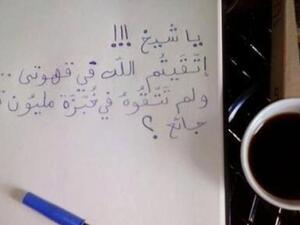 يا شيخ !!!
إتَقَيتُم اللّه في قهوتي ..
ولم تَتَقُوهُ في خُبْزَة مليون
جائع ؟